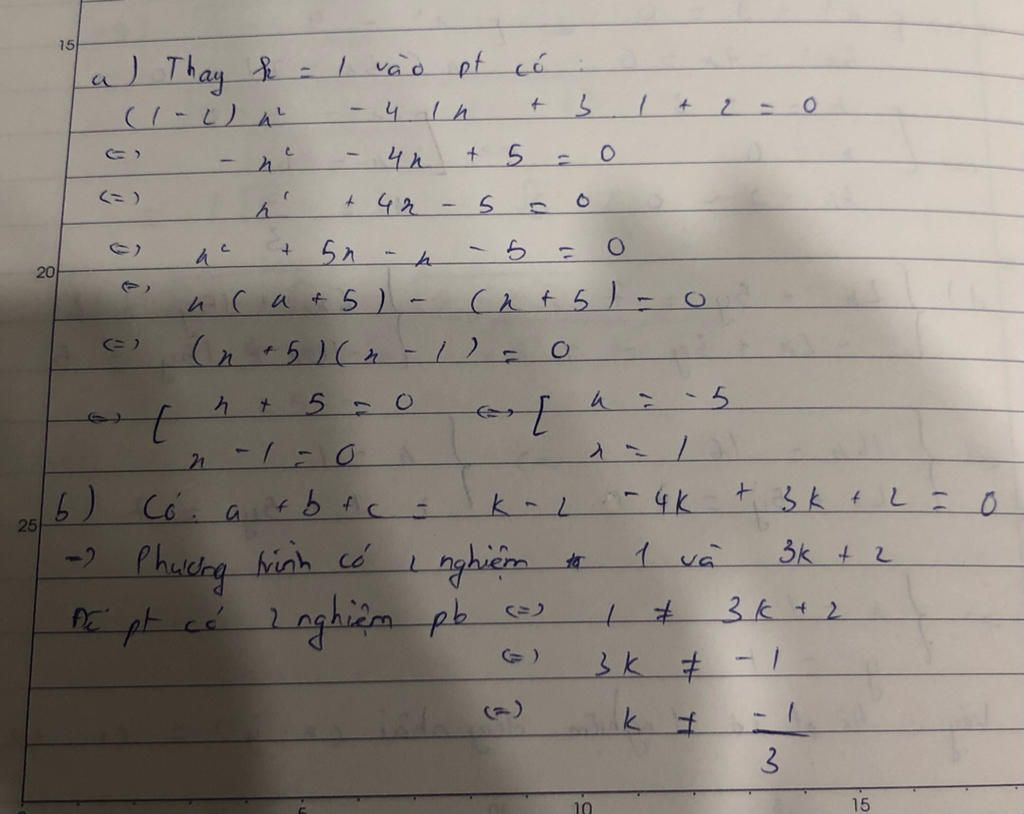 15
a) Thay k = 1 vào pt có :
(1 - 2) x² - 4.1x + 3.1 + 2 = 0
<=> - x² - 4x + 5 = 0
<=> x² + 4x - 5 = 0
<=> x² + 5x - x - 5 = 0
20
<=> x ( x + 5 ) - ( x + 5 ) = 0
<=> (x + 5)(x - 1) = 0
<=> [ x + 5 = 0 <=> [ x = -5
x - 1 = 0 x = 1
b) Có: a + b + c = k - 2 - 4k + 3k + 2 = 0
25
=> Phương trình có 2 nghiệm 1 và 3k + 2
Để pt có 2 nghiệm pb <=> 1 ≠ 3k + 2
<=> 3k ≠ -1
<=> k ≠ -1/3
5 10 15